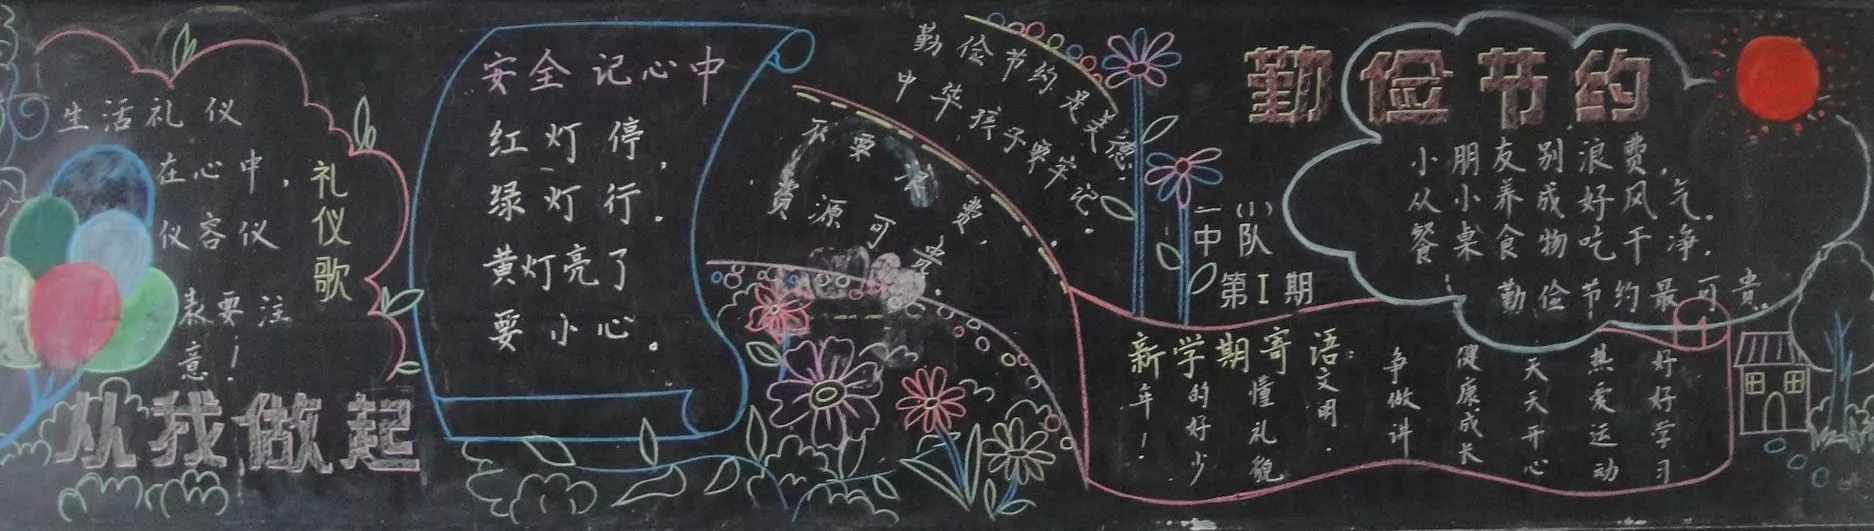 生活礼仪
在心中，
仪容仪
表要注
意！
礼仪歌
从我做起
安全记心中
红灯停，
绿灯行。
黄灯亮了
要小心。
勤俭节约是美德，
中华孩子牢牢记。
费，
资源可贵。
一(1)
中队
第1期
勤俭节约
小朋友别浪费，
从小养成好风气。
餐桌食物吃干净，
勤俭节约最可贵。
新学期寄语：
好好学习
热爱运动
天天开心
健康成长
争做讲
文明．
懂礼貌
的好少
年！